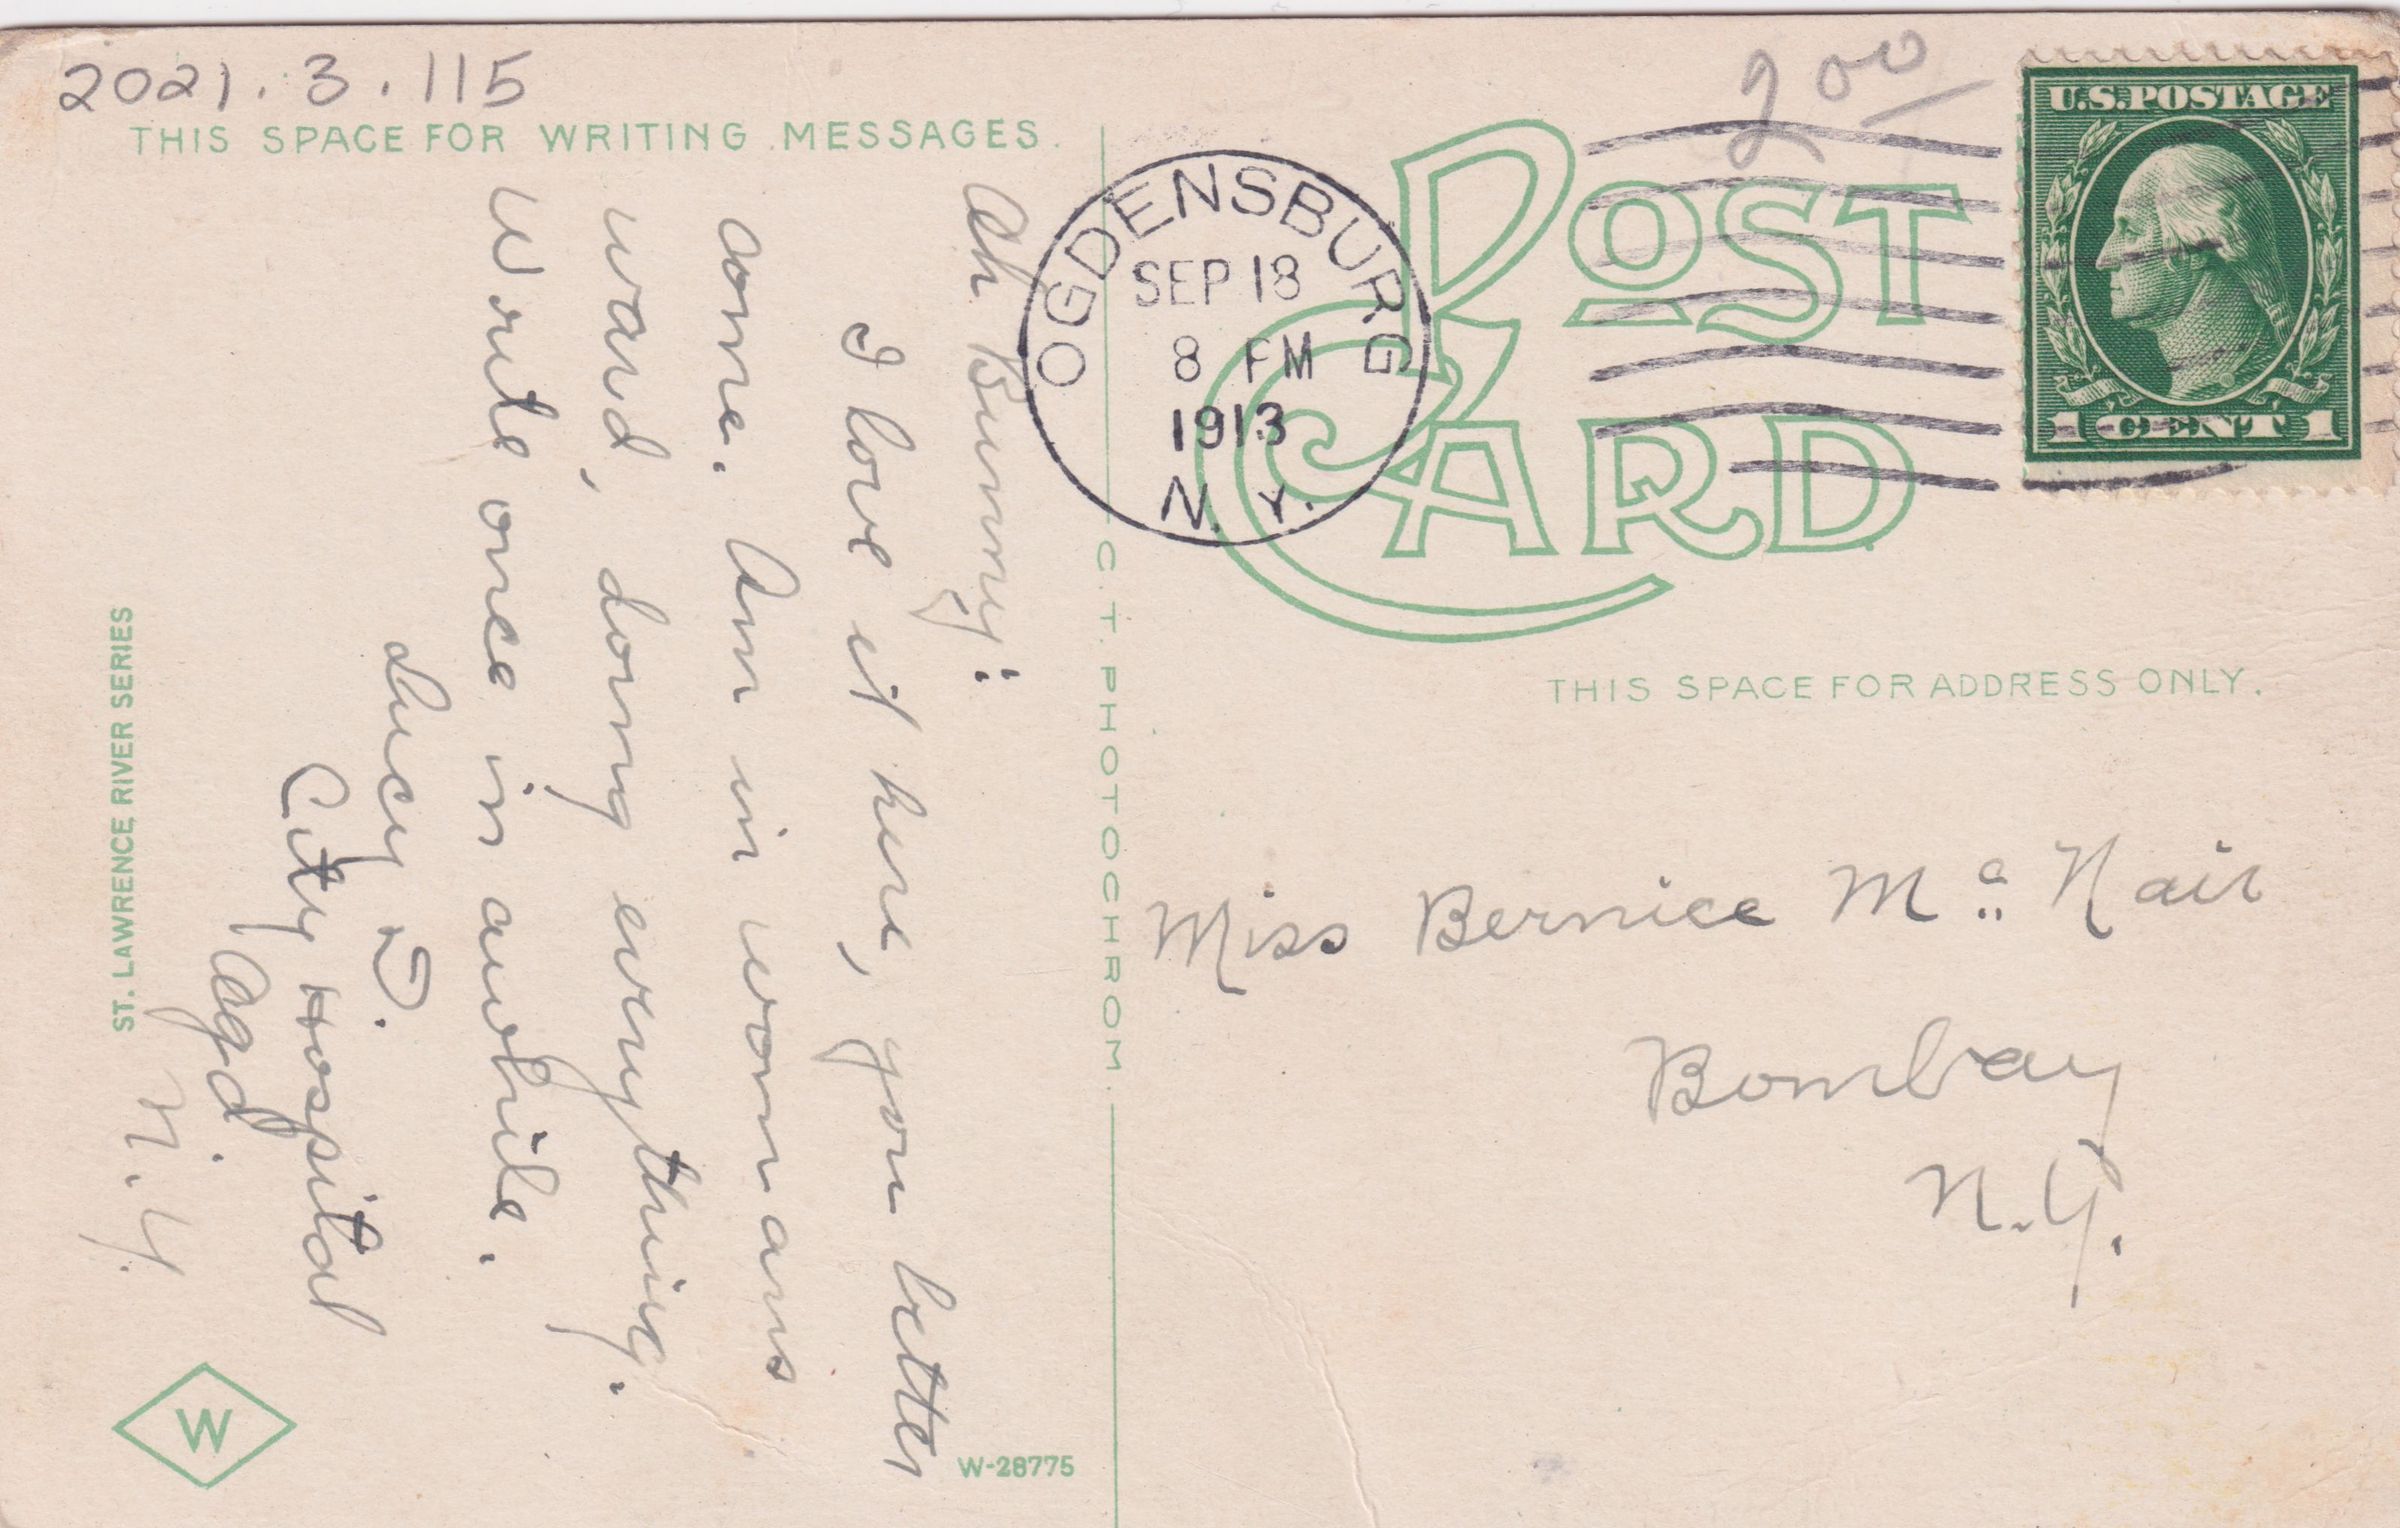 2021.3.115
THIS SPACE FOR WRITING MESSAGES.
Ah Bunny:
I love it here, you better
come. Am in womans
ward, doing everything.
Write once in awhile.
Lucy D.
City Hospital
Ogd.
N.Y.
ST. LAWRENCE RIVER SERIES
W
W-28775
C. T. PHOTOCHROM.
OGDENSBURG
SEP 18
8 PM
1913
N. Y.
2 00
POST
CARD
U.S. POSTAGE
1 CENT 1
THIS SPACE FOR ADDRESS ONLY.
Miss Bernice Mc Nair
Bombay
N.Y.